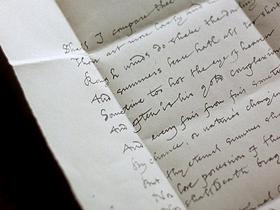 Shall I compare thee
Thou art more lovely and
Rough winds do shake the darling
And summers lease hath all too short
Sometime too hot the eye of heaven
And often is his gold complexion
And every fair from fair sometime
By chance, or natures changing
But thy eternal summer shall
Nor lose possession of tha
Nor shall Death brag